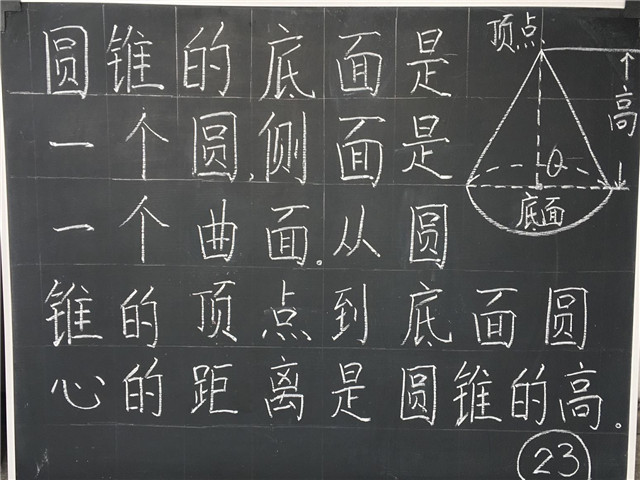 圆锥的底面是
一个圆,侧面是
一个曲面.从圆
锥的顶点到底面圆
心的距离是圆锥的高.
顶点
高
O
底面
23